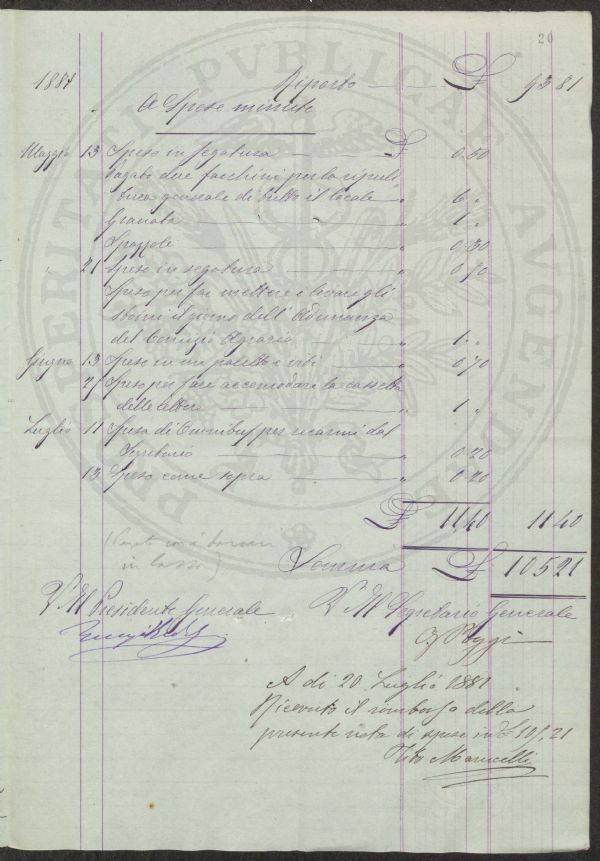 20
1881 Riporto £ 93 81
A Spese minute
Maggio 13 Speso in segatura £ 0,50
Pagato due facchini per la ripuli-
tura generale di tutto il locale " 6 "
Granata " 1 "
Spazzole " 0,30
" 21 Speso in segatura " 0,70
Speso per far mettere e levare gli
il giorno dell'Adunanza
del Comizio Agrario " 1 "
Giugno 13 Speso in un paletto e viti " 0,70
27 Speso per fare accomodare la cassetta
delle lettere " 1 "
Luglio 11 Spesa di Omnibus per recarmi dal
Segretario " 0.20
13 Speso come sopra " 0.20
£ 11,40 11 40
Somma £ 105 21
in basso)
V° Il Presidente Generale V° Il Segretario Generale
Poggi
A di 20 Luglio 1881
Ricevuto il rimborso della
presente nota di spese in £ 105,21
Tito Marucelli
PROSPERITATI PUBLICAE AVGENDAE